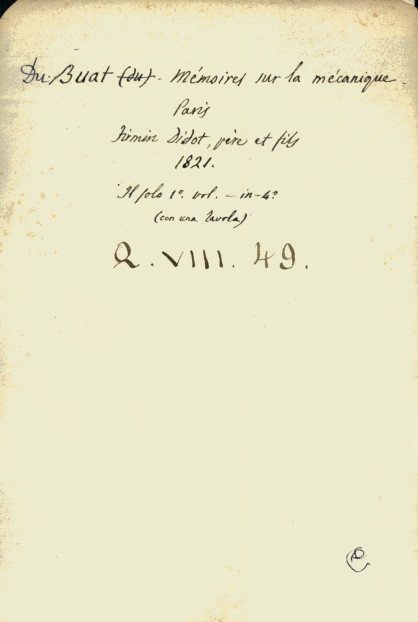 Du Buat (du) - Mémoires sur la mécanique.
Paris
Firmin Didot, père et fils
1821.
Il solo 1º. vol. - in-4º
(con una tavola)
Q. VIII. 49.